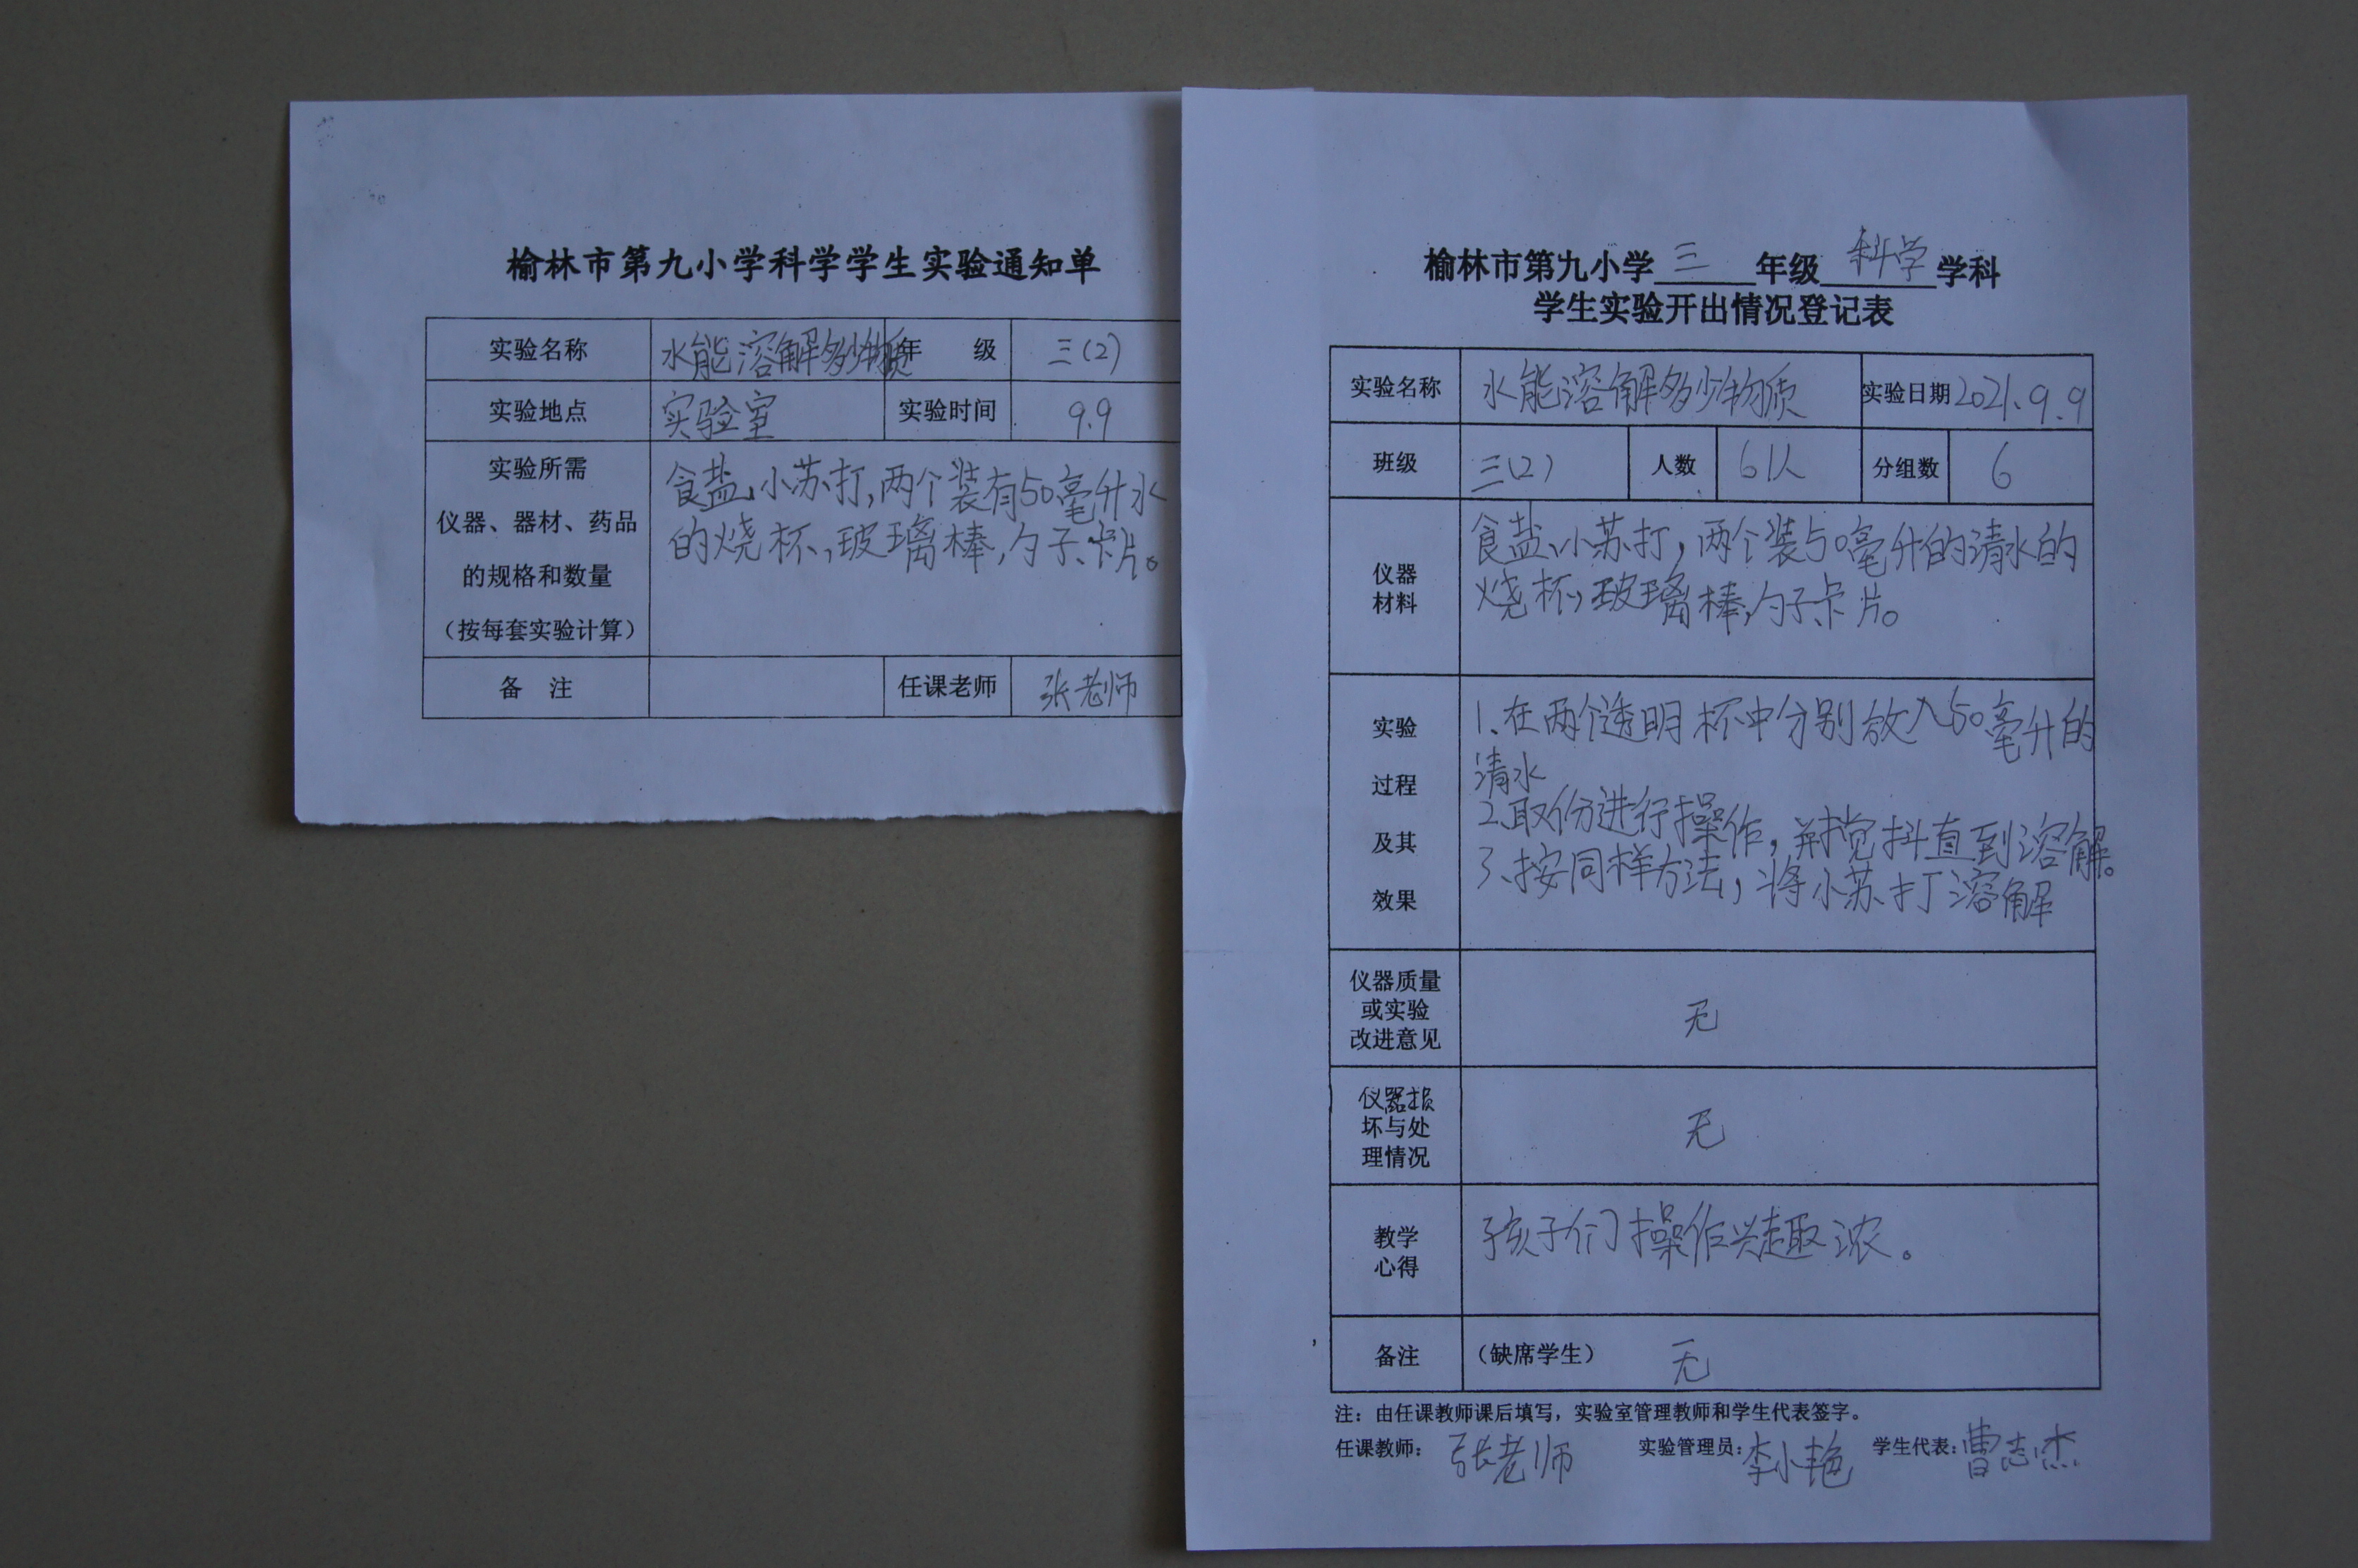 榆林市第九小学科学学生实验通知单
实验名称 水能溶解多少物质 年 级 三(2)
实验地点 实验室 实验时间 9.9
实验所需
仪器、器材、药品
的规格和数量
（按每套实验计算）
食盐、小苏打,两个装有50毫升水
的烧杯,玻璃棒,勺子、卡片。
备 注 任课老师 张老师
榆林市第九小学 三 年级 科学 学科
学生实验开出情况登记表
实验名称 水能溶解多少物质 实验日期 2021.9.9
班级 三(2) 人数 61人 分组数 6
仪器
材料
食盐、小苏打,两个装50毫升的清水的
烧杯,玻璃棒,勺子、卡片。
实验
过程
及其
效果
1、在两个透明杯中分别放入50毫升的
清水
2、取一份进行操作,并搅抖直到溶解。
3、按同样方法,将小苏打溶解
仪器质量
或实验
改进意见
无
仪器损
坏与处
理情况
无
教学
心得
孩子们操作兴趣浓。
备注 （缺席学生） 无
注：由任课教师课后填写，实验室管理教师和学生代表签字。
任课教师： 张老师 实验管理员： 李小艳 学生代表： 曹志杰